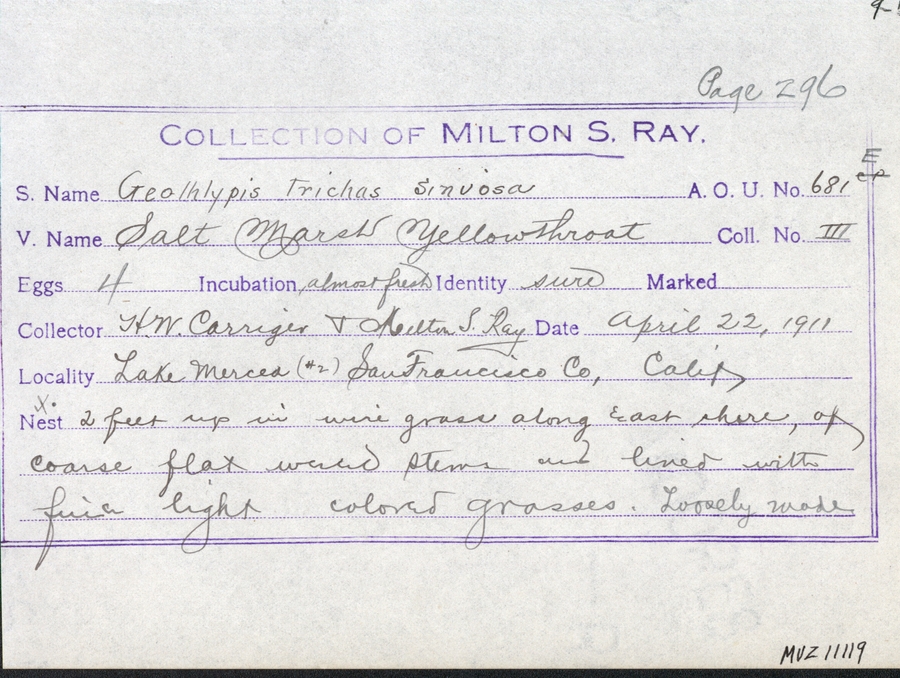 Page 296
COLLECTION OF MILTON S. RAY.
S. Name Geothlypis Trichas Sinuosa A. O. U. No. 681
V. Name Salt Marsh Yellowthroat Coll. No. III
Eggs 4 Incubation almost fresh Identity sure Marked
Collector H.W. Carriger & Milton S. Ray Date April 22, 1911
Locality Lake Merced (#2) San Francisco Co, Calif
Nest 2 feet up in wire grass along East shore, of
coarse flat weed stems and lined with
fine light colored grasses. Loosely made
MVZ 11119